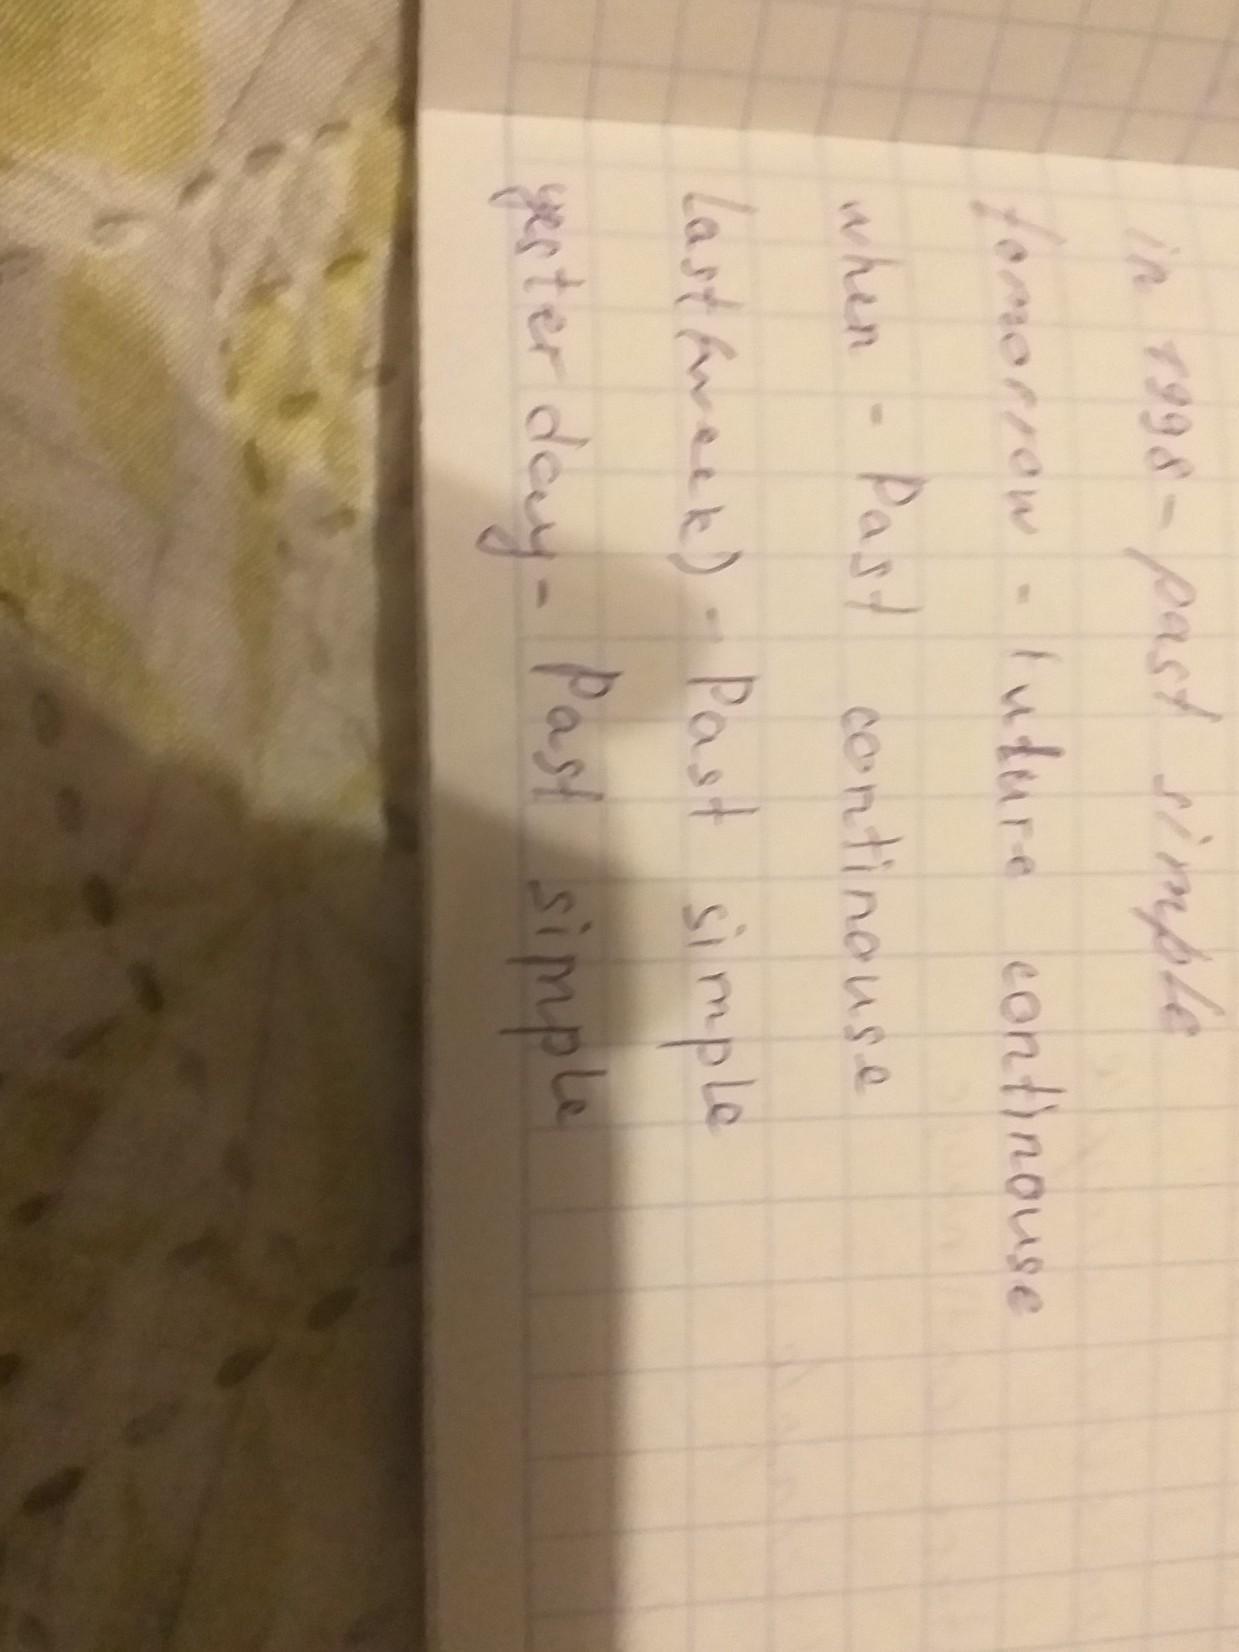 in 1998 - past simple
tomorrow - Future continouse
when - Past continouse
Last (week) - Past simple
yesterday - Past simple